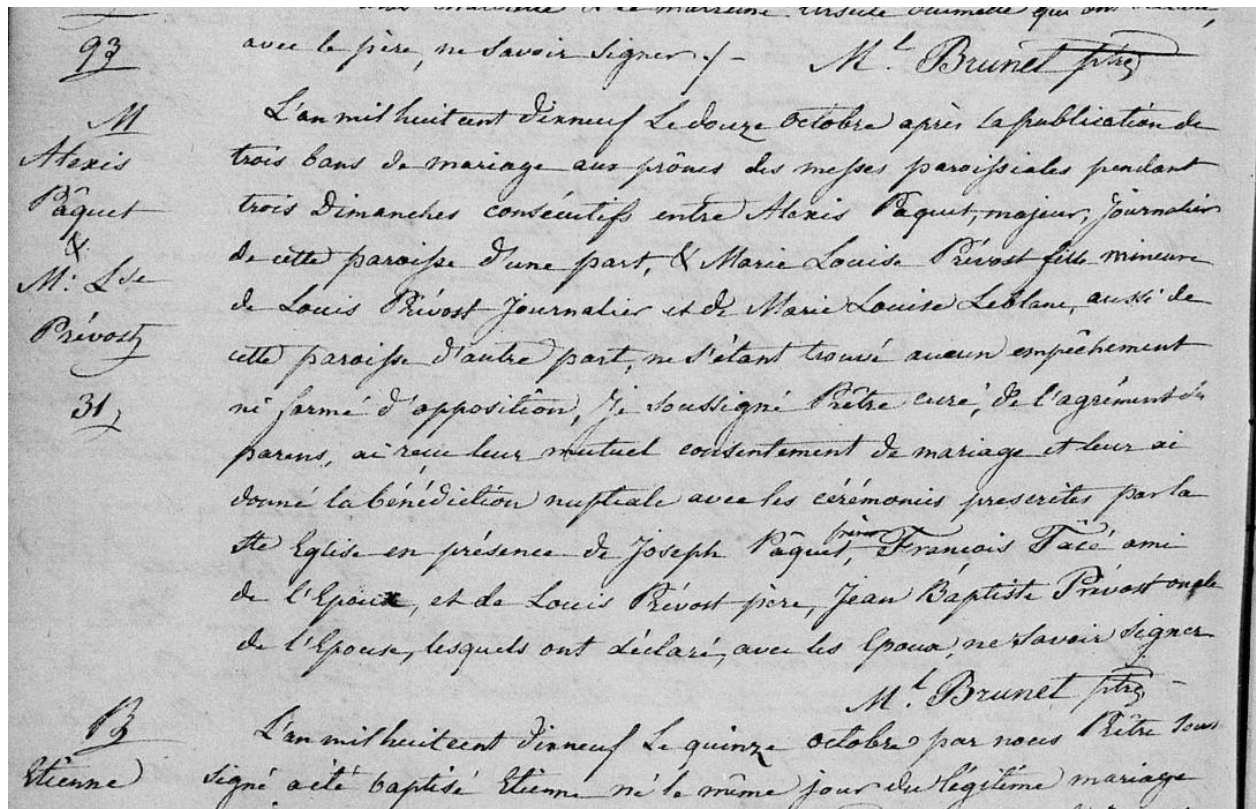 la marreine Ursule Ouimette qui ont déclaré,
93
avec le père, ne Savoir Signer ./-
M.l Brunet ptre
M
Alexis
Pâquet
&
M: Lse
Prévost
31
L'an mil huit cent dixneuf Le douze octobre après la publication de
trois bans de mariage aux prônes des messes paroissiales pendant
trois Dimanches consécutifs entre Alexis Paquet, majeur, Journalier
de cette paroisse d'une part, & Marie Louise Prévost fille mineure
de Louis Prévost Journalier et de Marie Louise Leblanc, aussi de
cette paroisse d'autre part, ne s'étant trouvé aucun empêchement
ni formé d'opposition, Je Soussigné Prêtre curé, de l'agrément des
parens, ai reçu leur mutuel consentement de mariage et leur ai
donné la bénédiction nuptiale avec les cérémonies prescrites par la
Ste Eglise en présence de Joseph Pâquet, frère François Tâcé ami
de l'Epoux, et de Louis Prévost père, Jean Baptiste Prévost oncle
de l'Epouse, lesquels ont déclaré, avec les Epoux, ne Savoir Signer
M.l Brunet ptre
B
Etienne
L'an mil huit cent dixneuf Le quinze octobre par nous Prêtre Sous
signé a été baptisé Etienne né le même jour du légitime mariage